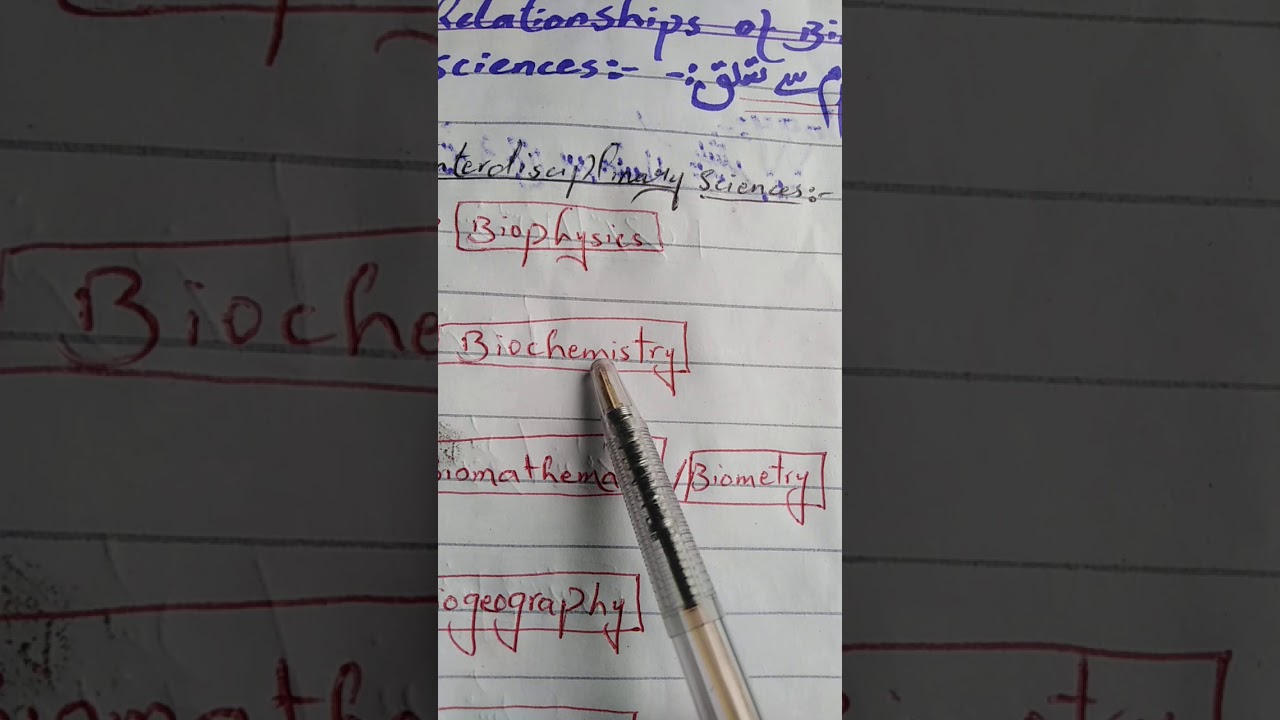 Relationships of Bi
sciences:- -: سے تعلق
nterdisciplinary sciences:-
Biophysics
Biochemistry
iomathema / Biometry
iogeography